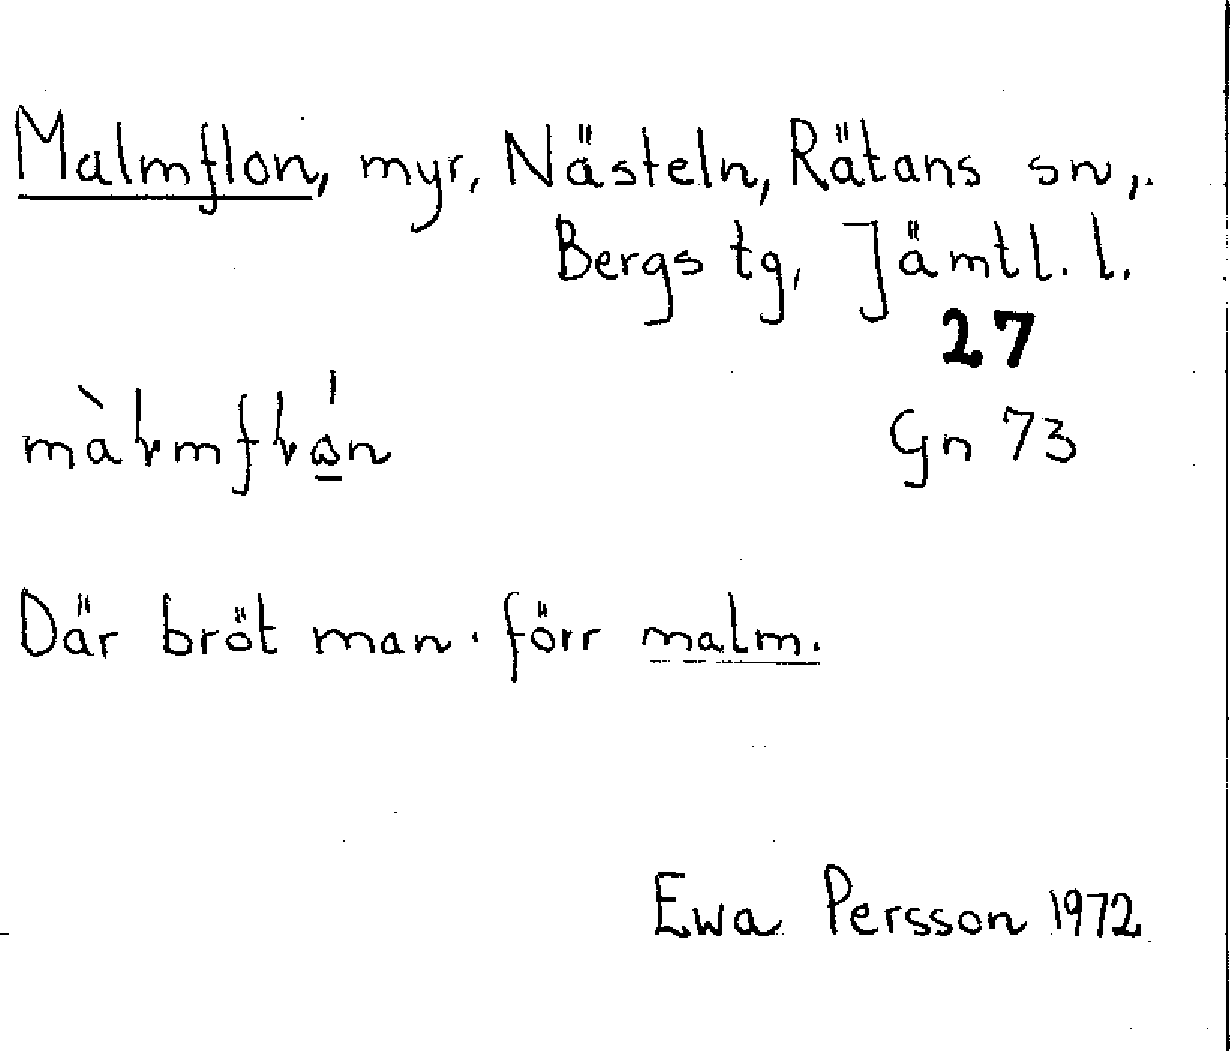 Malmflon, myr, Nästeln, Rätans sn,
Bergs tg, Jämtl. l.
27
Gn 73
Där bröt man förr malm.
Ewa Persson 1972